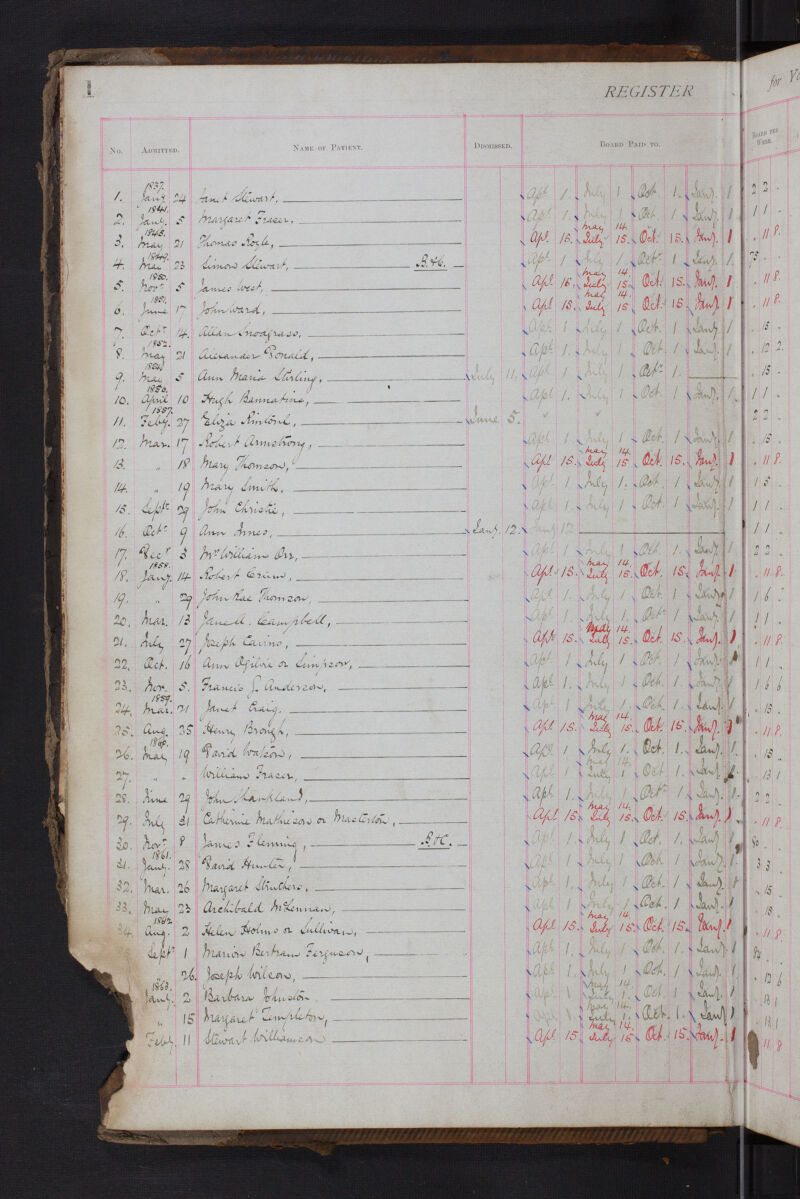 1
REGISTER
for
No. ADMITTED. NAME OF PATIENT. DISMISSED. BOARD PAID TO. BOARD PER WEEK.
1837.
1. Jany. 24 Janet Stewart, Apl. 1. July 1 Oct. 1. Jany. 1 22 -
1841.
2. Jany. 5 Margaret Fraser, Apl. 1. July 1 Oct. 1 Jany. 1 11 -
1845. May 14.
3. May 21 Thomas Boyle, Apl. 15. July 15. Oct. 15. Jany. 1 . 11 8.
1849.
4. May 23 Simon Stewart, B.&C. Apl. 1 July 1 Oct. 1 Jany. 1
1850. May 14
5. Novr. 5 James West, Apl. 15. July 15. Oct. 15. Jany. 1 . 11 8.
1851. May 14.
6. June 17 John Ward, Apl. 15. July 15 Oct. 15 Jany. 1 . 11 8.
7. Octr. 14. Allan Snodgrass, Apl. 1 July 1 Oct. 1 Jany. 1 . 15 -
1852.
8. May 21 Alexander Ronald, Apl. 1. July 1 Oct. 1. Jany. 1 . 12 2.
9. May 5 Ann Maria Stirling, July 11. Apl. 1 July 1 Octr. 1. . 15 -
1856.
10. April 10 Hugh Bannatine, Apl. 1. July 1 Oct. 1 Jany. 1. 11 -
1857.
11. Feby. 27 Eliza June 5. " " 22 -
12. Mar. 17 Robert Armstrong, Apl. 1 July 1 Oct. 1 Jany. 1 . 15 .
May 14.
13. " 18 Mary Thomson, Apl. 15. July 15 Oct. 15. Jany. 1 . 11 8.
14. " 19 Mary Smith, Apl. 1 July 1. Oct. 1 Jany. 1 15 .
15. Septr. 29 John Christie, Apl. 1. July 1 Oct. 1 Jany. 1 11 -
16. Octr. 9 Ann Innes, Jany. 12. Jany. 12 11 -
17. Decr. 3 Mrs. William Orr, Apl. 1 July 1 Oct. 1 Jany. 1 22 -
1858. May 14.
18. Jany. 14 Robert Crum, Apl. 15. July 15. Oct. 15. Jany. 1 . 11 8.
19. " 29 John Rae Thomson, Apl. 1 July 1 Oct. 1 Jany. 1 16 -
20. Mar. 13 Campbell, Apl. 1. July 1 Oct. 1 Jany. 1 11 -
May 14.
21. July 27 Joseph Cavino, Apl. 15. July 15. Oct. 15. Jany. 1 . 11 8.
22. Oct. 16 Ann Ogilvie or Simpson, Apl. 1 July 1 Oct. 1 Jany. 11 .
23. Nov. 5. Francis J. Anderson, Apl. 1. July 1 Oct. 1 Jany. 1 16 6
1859.
24. Mar. 21 Janet Craig, Apl. 1 July 1. Oct. 1 Jany. 1 . 15 .
May 14.
25. Aug. 25 Henry Brough, Apl. 15. July 15. Oct. 15. Jany. 1 . 11 8.
1860.
26. May 19 David Watson, Apl. 1 July 1. Oct. 1. Jany. 1. . 15 .
May 14.
27. " " William Fraser, Apl. 1 July 1 Oct. 1 Jany. . 13 1
28. June 29 John Shankland, Apl. 1. July 1 Oct. 1 Jany. 1. 22 -
May 14.
29. July 31 Catherine Mathieson or Masterton, Apl. 15. July 15. Oct. 15. Jany. 1 . 11 8.
30. Novr. 8 James Fleming, B.&C. Apl. 1 July 1 Oct. 1. Jany. 1
1861.
31. Jany. 28 David Hunter, Apl. 1 July 1 Oct. 1 Jany. 1. 33 -
32. Mar. 26 Margaret Struthers, Apl. 1. July 1 Oct. 1. Jany. 1 . 15 .
33. May 23 Archibald McLennan, Apl. 1 July 1 Oct. 1 Jany. 1 . 15 .
1862. May 14.
34. Aug. 2 Helen Holms or Sullivan, Apl. 15. July 15. Oct. 15. Jany. 1 . 11 8.
Septr. 1 Marion Bertram Ferguson, Apl. 1. July 1 Oct. 1. Jany. 1
26. Joseph Wilson, Apl. 1. July 1 Oct. 1 Jany. 1. . 12 6
1863. May 14.
Jany. 2 Barbara Johnston Apl. 1 July 1. Oct. 1 Jany. 1 . 13 1
May 14.
" 15 Margaret Templeton, Apl. 1. July 1. Oct. 1. Jany. 1 . 13 1
May 14.
Feby. 11 Stewart Williamson Apl. 15. July 15. Oct. 15. Jany. 1 11 8